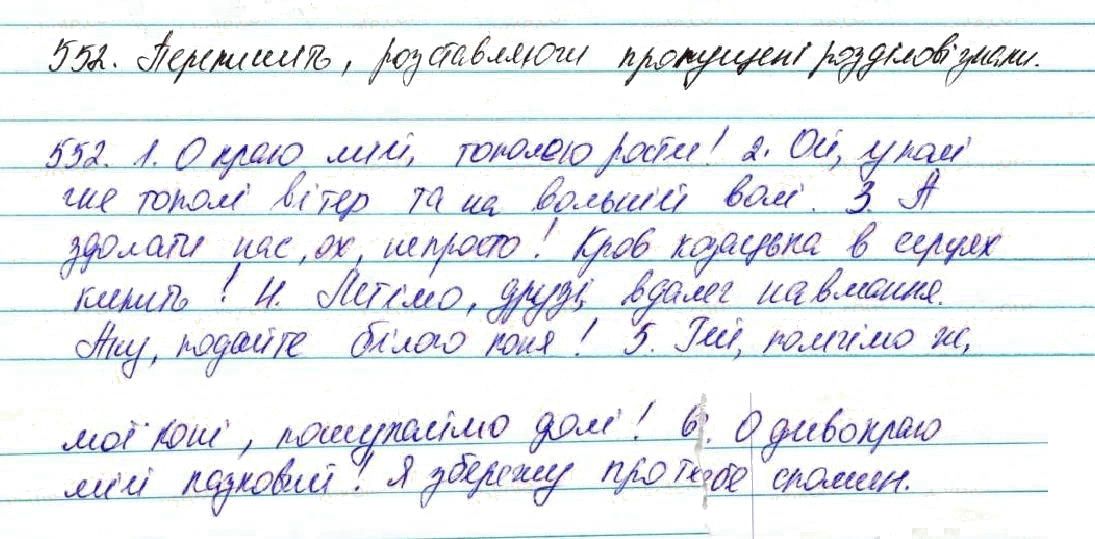 552. Перепишіть, розставляючи пропущені розділові знаки.
552. 1. О краю мій, тополею рости! 2. Ой, у полі
гне тополі вітер та на вольній волі. 3. А
здолати нас, ох, непросто! Кров козацька в серцях
кипить! 4. Летімо, друзі, вдалеч навмання.
Ану, подайте білого коня! 5. Гей, помчімо ж,
мої коні, пошукаймо долі! 6. О дивокраю
мій казковий! Я збережу про тебе спомин.